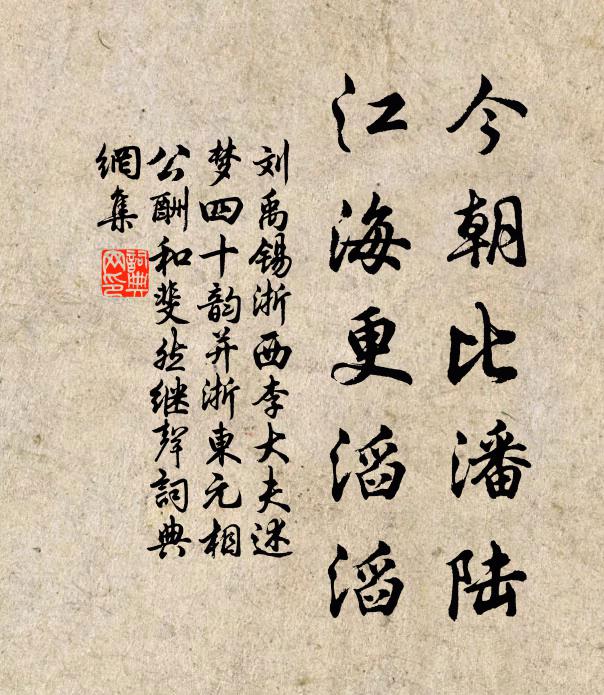 今朝比潘陆
江海更滔滔
刘禹锡浙西李大夫述
梦四十韵并浙東元相
公酬和斐然继聲詞典
網集
詞典
网印